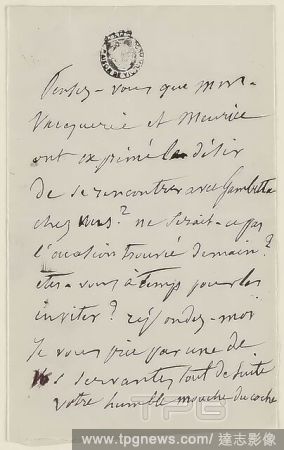 Pensez-vous que mon-
Vacquerie et Meurice
ont exprimé le désir
de se rencontrer avec Gambetta
chez vous? ne serait-ce pas
l'occasion trouvée demain?
êtes-vous à temps pour les
inviter? répondez-moi
je vous prie par une de
vos servantes tout de suite
votre humble mouche du coche
TPG
www.tpgnews.com/達志影像